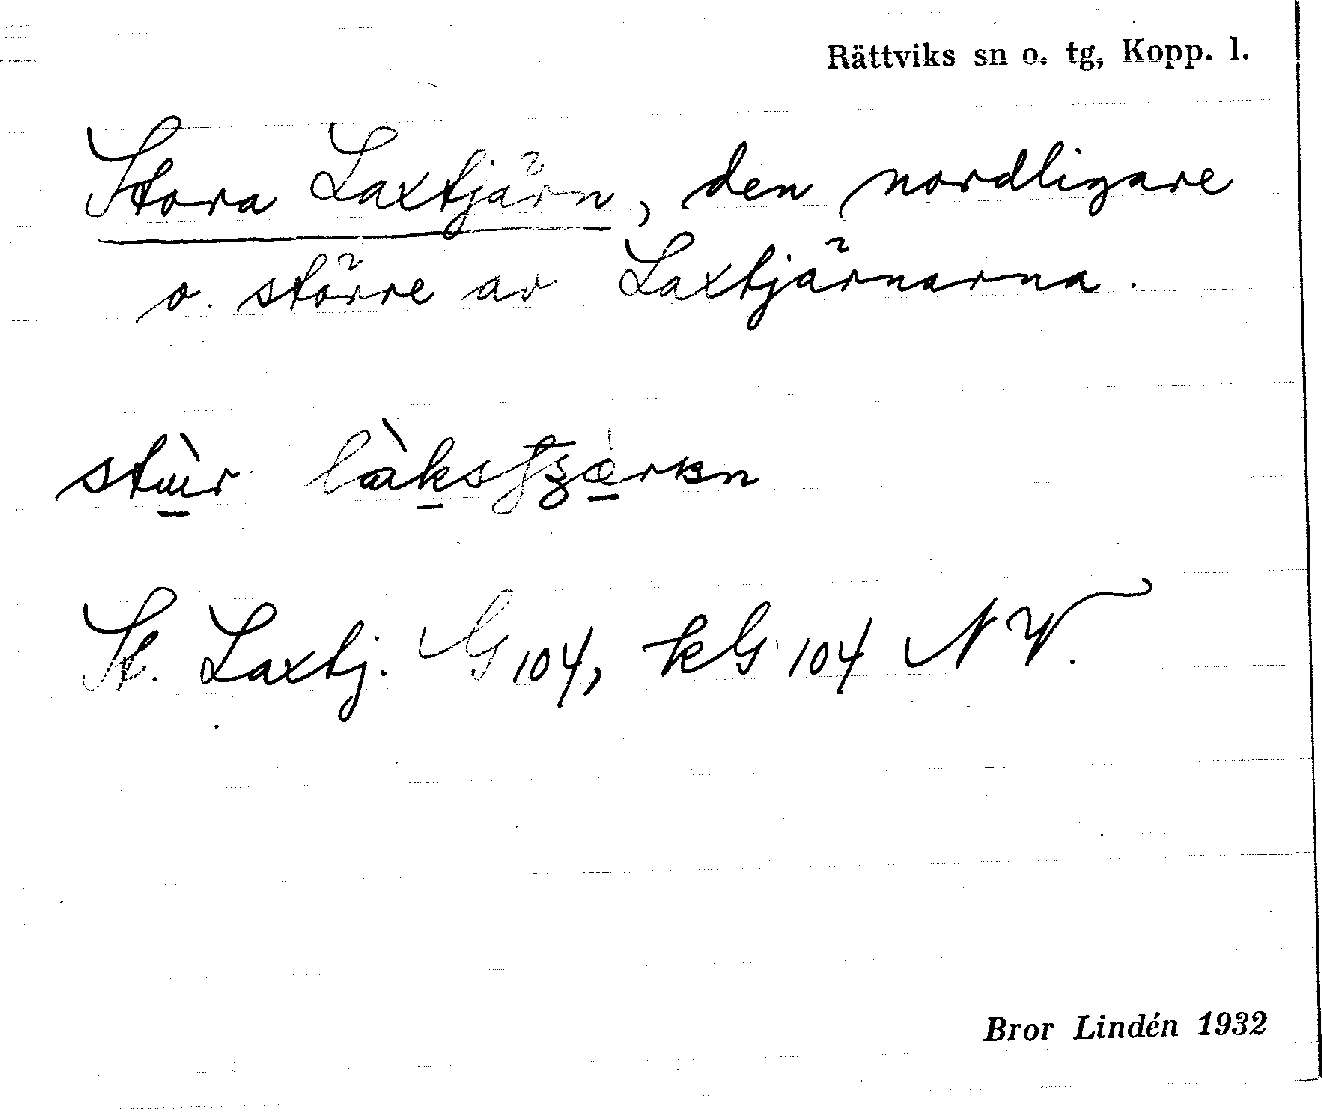 Rättviks sn o. tg, Kopp. l.
Stora Laxtjärn, den nordligare
o. större av Laxtjärnarna.
stùr
St. Laxtj. G 104, kG 104 NV.
Bror Lindén 1932